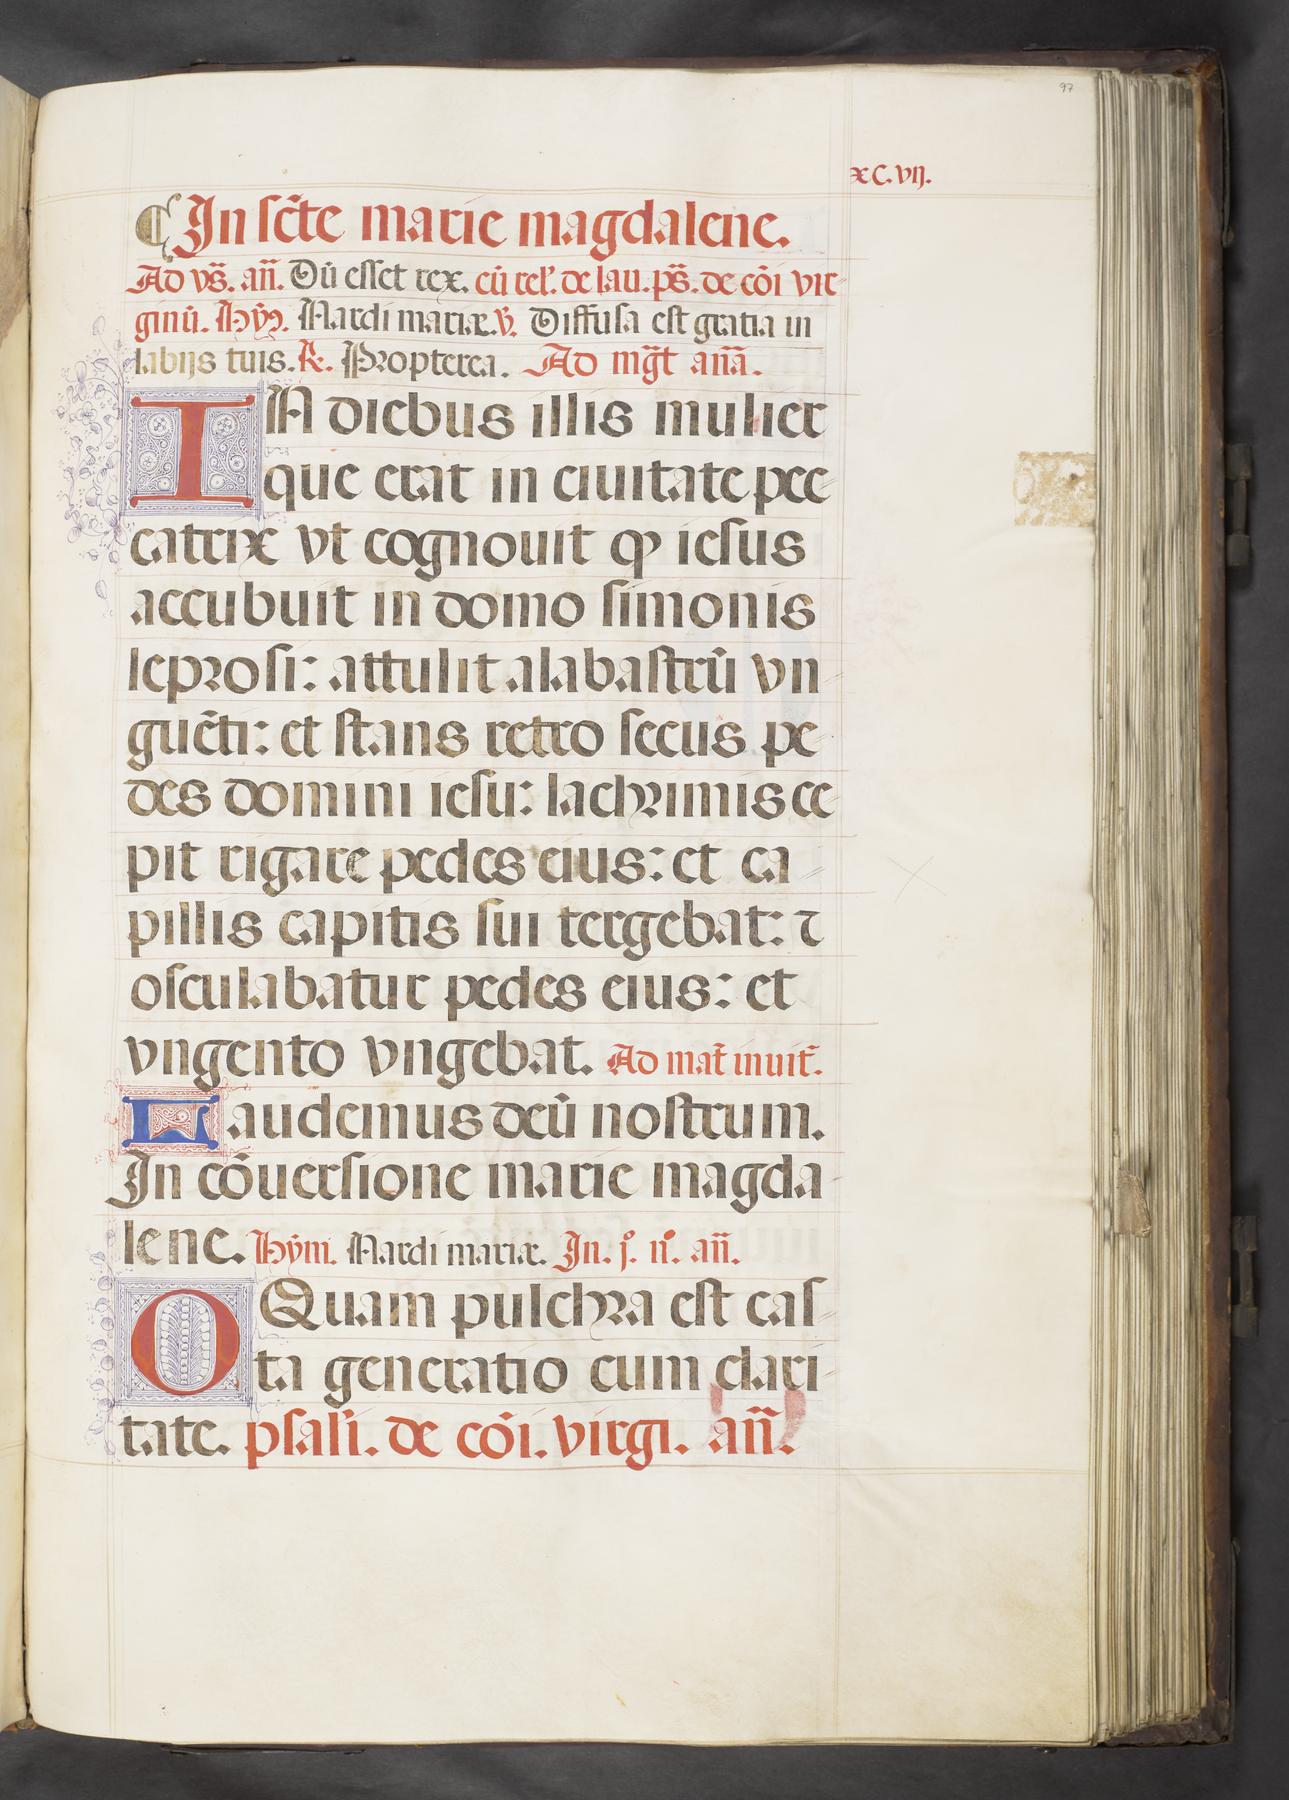 97
xC.vij.
¶ In sc̃te marie magdalene.
Ad vs̃. an̄. Dū esset rex. cū rel'. de lau. ps̃. de cōi vir
ginū. hỹ. Nardi marie. ℣. Diffusa est gratia in
labijs tuis. ℟. Propterea. Ad mg̃t anā.
IN diebus illis mulier
que erat in ciuitate pec
catrix vt cognouit ꝙ iesus
accubuit in domo simonis
leprosi: attulit alabastrū vn
guēti: et stans retro secus pe
des domini iesu: lachrimis ce
pit rigare pedes eius: et ca
pillis capitis sui tergebat: ⁊
osculabatur pedes eius: et
vngento vngebat. Ad mat̃ inuit̃.
Laudemus deū nostrum.
In cōuersione marie magda
lene. hym̃. Nardi marie. In. jº. nº. an̄.
O Quam pulchra est cas
ta generatio cum clari
tate. psal'i. de cōi. virgi. an̄.